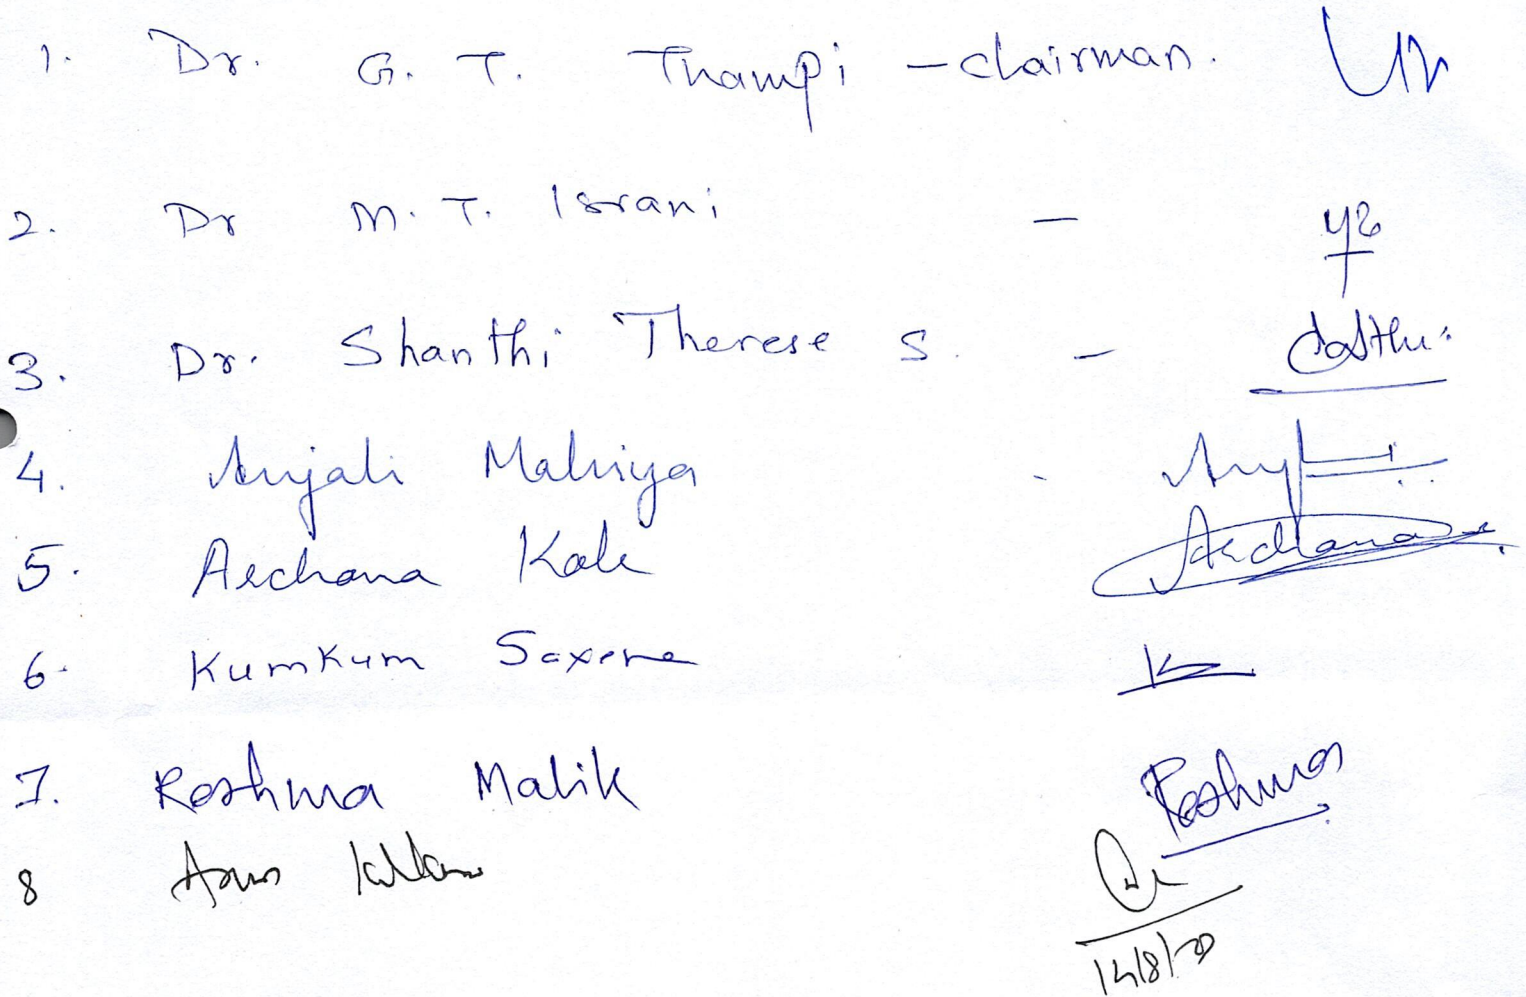 1. Dr. G. T. Thampi - chairman.
2. Dr M. T. Israni -
3. Dr. Shanthi Therese S. -
4. Anjali Malviya -
5. Archana Kale Archana
6. Kumkum Saxena
7. Reshma Malik Reshma
8